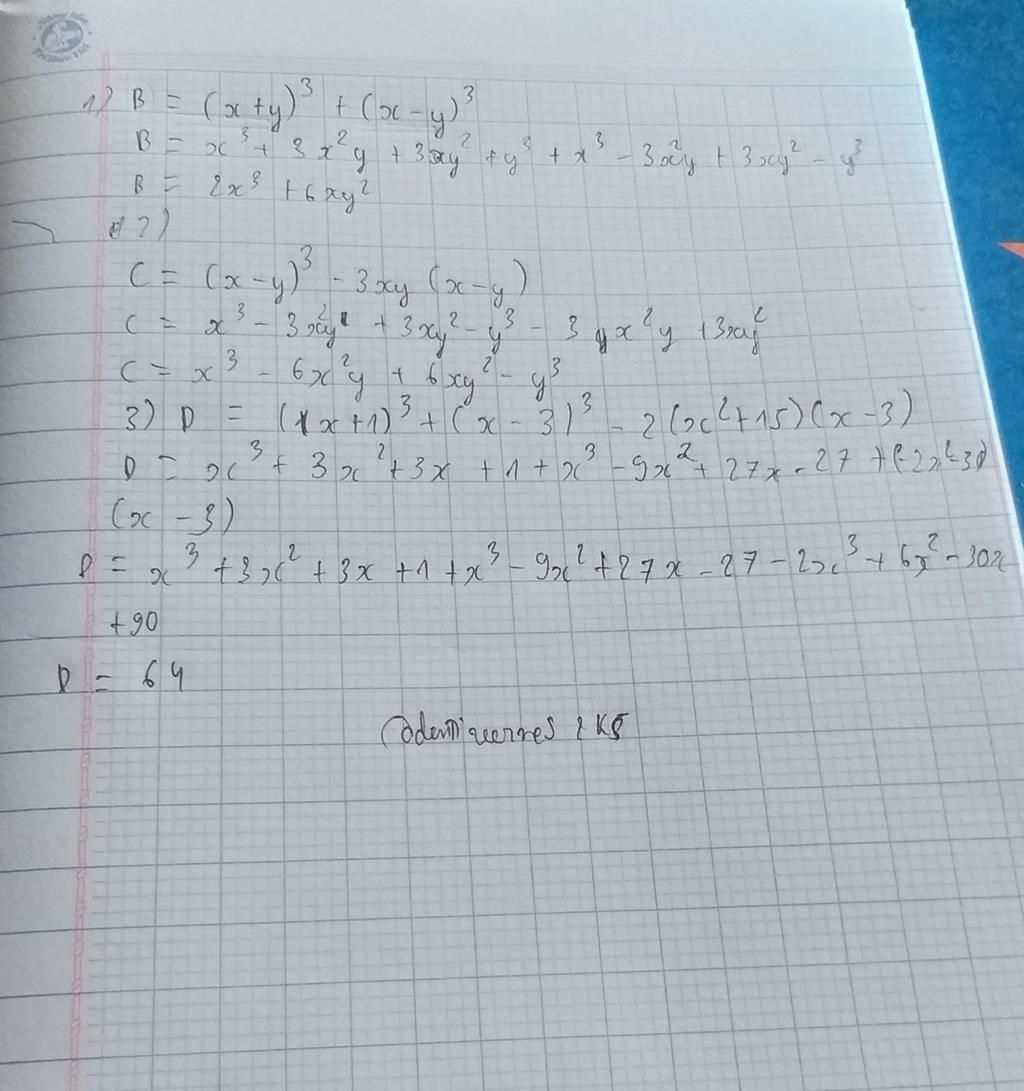 1) B = (x+y)³ + (x-y)³
B = x³ + 3x²y + 3xy² + y³ + x³ - 3x²y + 3xy² - y³
B = 2x³ + 6xy²
2)
C = (x-y)³ - 3xy (x-y)
C = x³ - 3x²y + 3xy² - y³ - 3 x²y + 3xy²
C = x³ - 6x²y + 6xy² - y³
3) D = (1x+1)³ + (x-3)³ - 2(x²+15)(x-3)
D = x³ + 3x² + 3x + 1 + x³ - 9x² + 27x - 27 + (-2x²-30)
(x-3)
D = x³ + 3x² + 3x + 1 + x³ - 9x² + 27x - 27 - 2x³ + 6x² - 30x
+90
D = 64